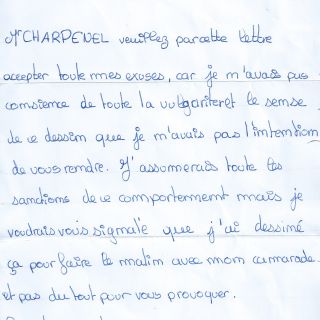 Mr CHARPENEL veuillez parcette lettre
accepter toute mes exuses, car je m'avais pas
consience de toute la vulgariteret le sense
de ce dessim que je m'avais pas l'intention
de vous remdre. J'assumerais toute les
samctioms de ce comportement mais je
voudrais vous signalé que j'ai dessimé
ça pour faire le malim avec mom camarade
et pas du tout pour vous provoquer.